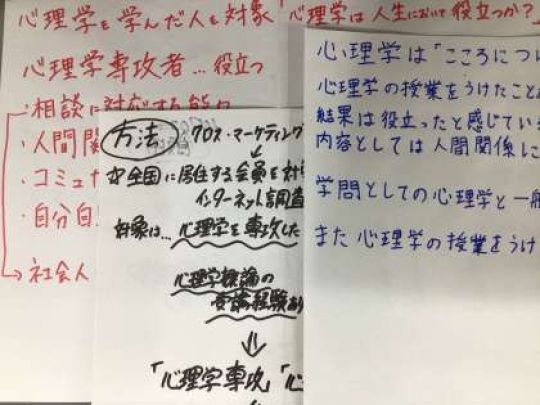 心理学を学んだ人を対象「心理学は人生において役立つか?」
心理学専攻者…役立つ
・相談に対応する能力
・人間関
・コミュナ
・自分自
社会人
方法
クロス・マーケティング
全国に居住する会員を対
インターネット調査
対象は…心理学を専攻した
心理学概論の
受講経験あり
「心理学専攻」「心
心理学は「こころについ
心理学の授業をうけたこと
結果は役立ったと感じてい
内容としては人間関係に
学問としての心理学と一般
また心理学の授業をうけ